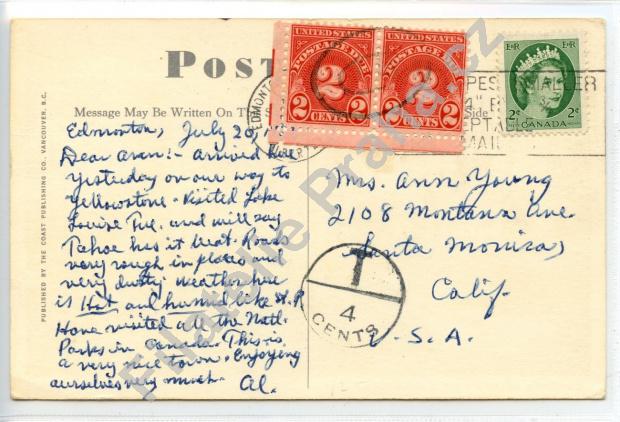 UNITED STATES UNITED STATES
POSTAGE DUE POSTAGE DUE
2 2
CENTS CENTS
E R
2¢ 2¢
CANADA
POST
Message May Be Written On This Side
EDMONTON
ALBERTA
MALLER
MAIL
PUBLISHED BY THE COAST PUBLISHING CO., VANCOUVER, B.C.
Edmonton, July 20,
Dear Ann:- Arrived here
yesterday on our way to
Yellowstone. Visited Lake
Louise Tue. and will say
Tahoe has it beat. Roads
very rough in places and
very dusty. Weather here
is Hot and humid like N.P.
Have visited all the Natl.
Parks in Canada. This is
a very nice town. Enjoying
ourselves very much.
Al.
Mrs. Ann Young
2108 Montana Ave.
Santa Monica,
Calif.
U.S.A.
T
4
CENTS
Filatelie Praha.cz